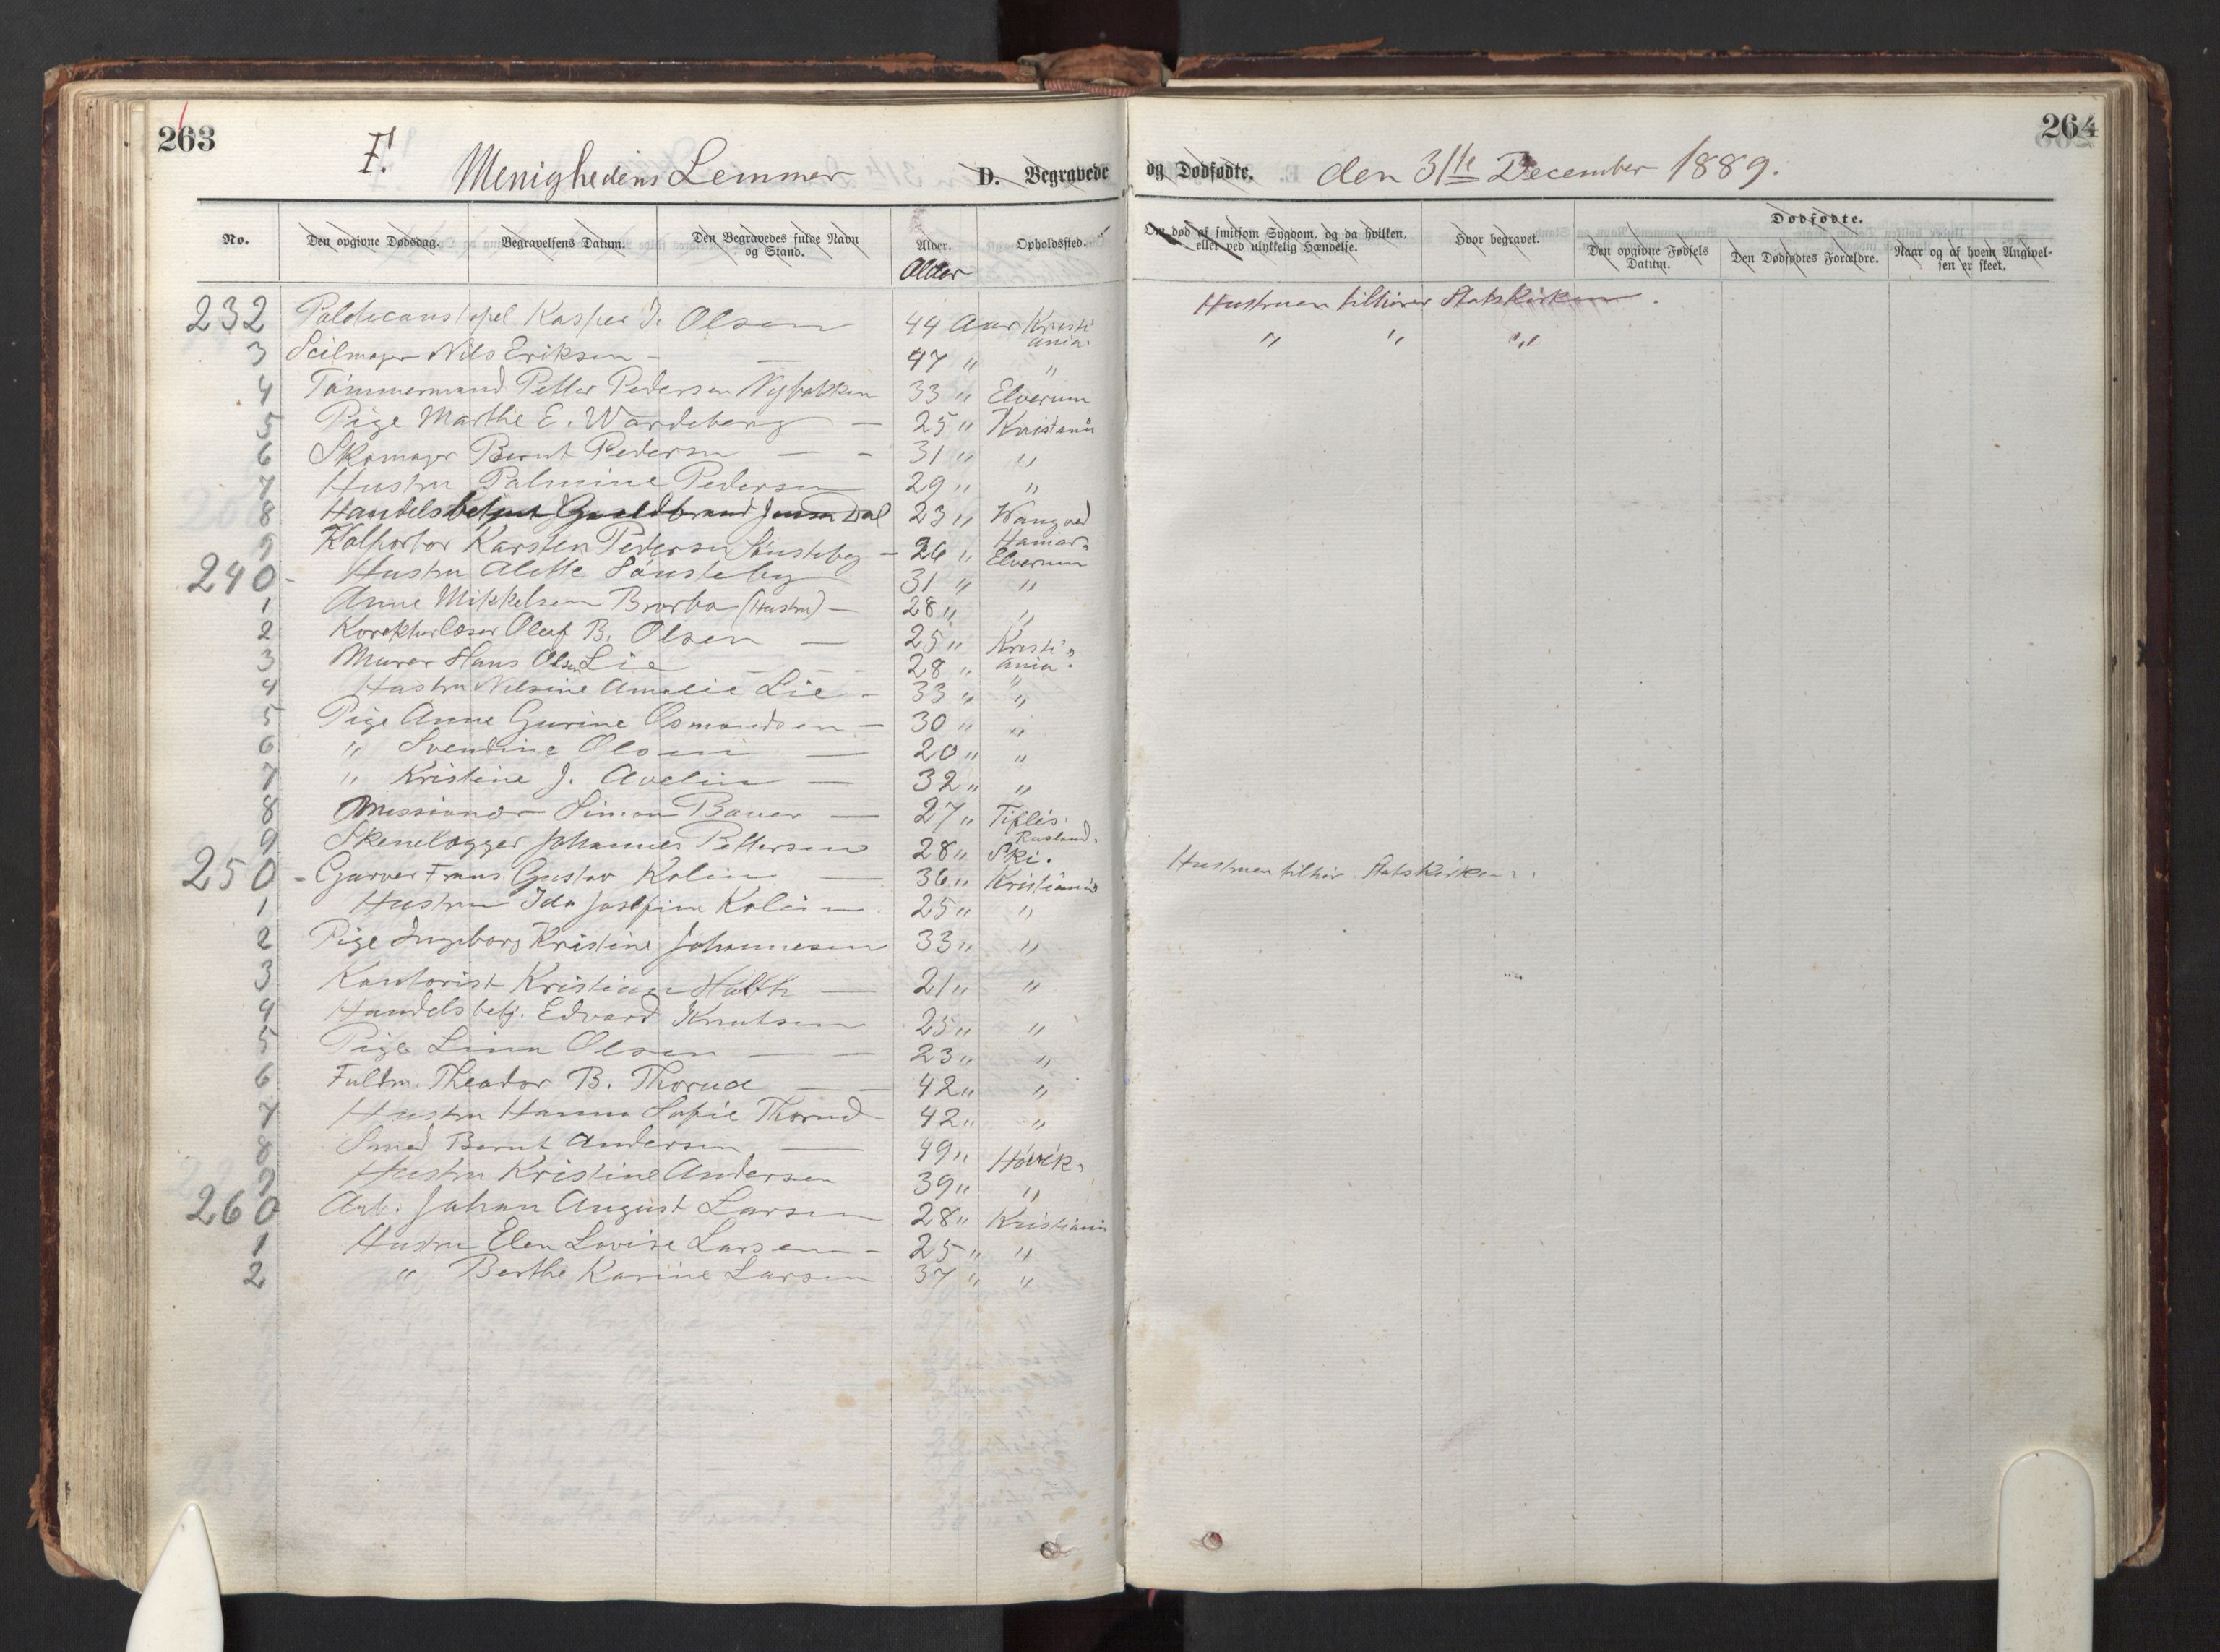 263
F. Menighedens Lemmer D. Begravede
No. Den opgivne Dødsdag. Begravelsens Datum. Den Begravedes fulde Navn og Stand. Alder. Opholdssted.
Alder
232 Kasper J. Olsen 44 Aar Kristiania
3 Seilmager Nils Eriksen — — 47 " "
4 Tømmermand Petter Pedersen Nybakken 33 " Elverum
5 Pige Marthe E. Wardeberg — 25 " Kristania
6 Skomager Bernt Pedersen — — 31 " "
7 Hustru Palmine Pedersen 29 " "
8 Handelsbetjent Guldbrand Jensen Dal 23 " Wang ved Hamar.
9 Kolportør Karsten Pedersen Sønsteby — 26 " Elverum
240 - Hustru Alette Sønsteby 31 " "
1 Anne Mikkelsen (Hustru) — 28 " "
2 Korekturlæser Olaf B. Olsen — 25 " Kristiania.
3 Murer Hans Olsen Lie — — 28 " "
4 Hustru Nilsine Amalie Lie - 33 " "
5 Pige Anne Gurine Osmundsen — 30 " "
6 " Svendine Olsen — 20 " "
7 " Kristine J. Avelin — 32 " "
8 Missionær Simon Bauer — 27 " Tiflis. Rusland.
9 Skenelægger Johannes Pettersen 28 " Ski.
250 - Garver Frans Gustav Kolin — 36 " Kristiania
1 Hustru Ida Josefine Kolin 25 " "
2 Pige Ingeborg Kristine Johannesen 33 " "
3 Kontorist Kristian Holth — 21 " "
4 Handelsbetj. Edvard Knutsen 25 " "
5 Pige Lina Olsen — — 23 " "
6 Fuldm. Theodor B. Thorud — — 42 " "
7 Hustru Hanna Sofie Thorud 42 " "
8 Smed Bernt Andersen — 49 " Høvik.
9 Hustru Kristine Andersen 39 " "
260 Arb. Johan August Larsen 28 " Kristiania
1 Hustru Elen Lovise Larsen - 25 " "
2 " Berthe Karine Larsen 37 " "
264
og Dødfødte. den 31te December 1889.
Om død af smitsom Sygdom, og da hvilken, eller ved ulykkelig Hændelse. Hvor begravet. Dødfødte.
Den opgivne Fødsels Datum. Den Dødfødtes Forældre. Naar og af hvem Angivelsen er skeet.
Hustruen tilhører Statskirken.
" " "
Hustruen tilhør. Statskirken.